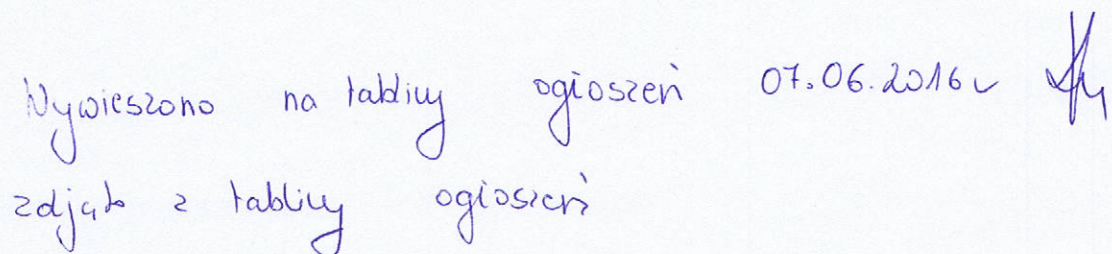 Wywieszono na tablicy ogłoszeń 07.06.2016r
zdjęto z tablicy ogłoszeń